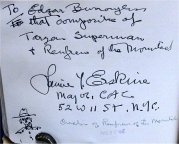 To Edgar Burroughs
that composite of
Tarzan Superman
& Renfrew of the Mounted
Laurie Y Erskine
Major, CAC
52 W 11 ST, N.Y.C.
Creator of Renfrew of the Mounted